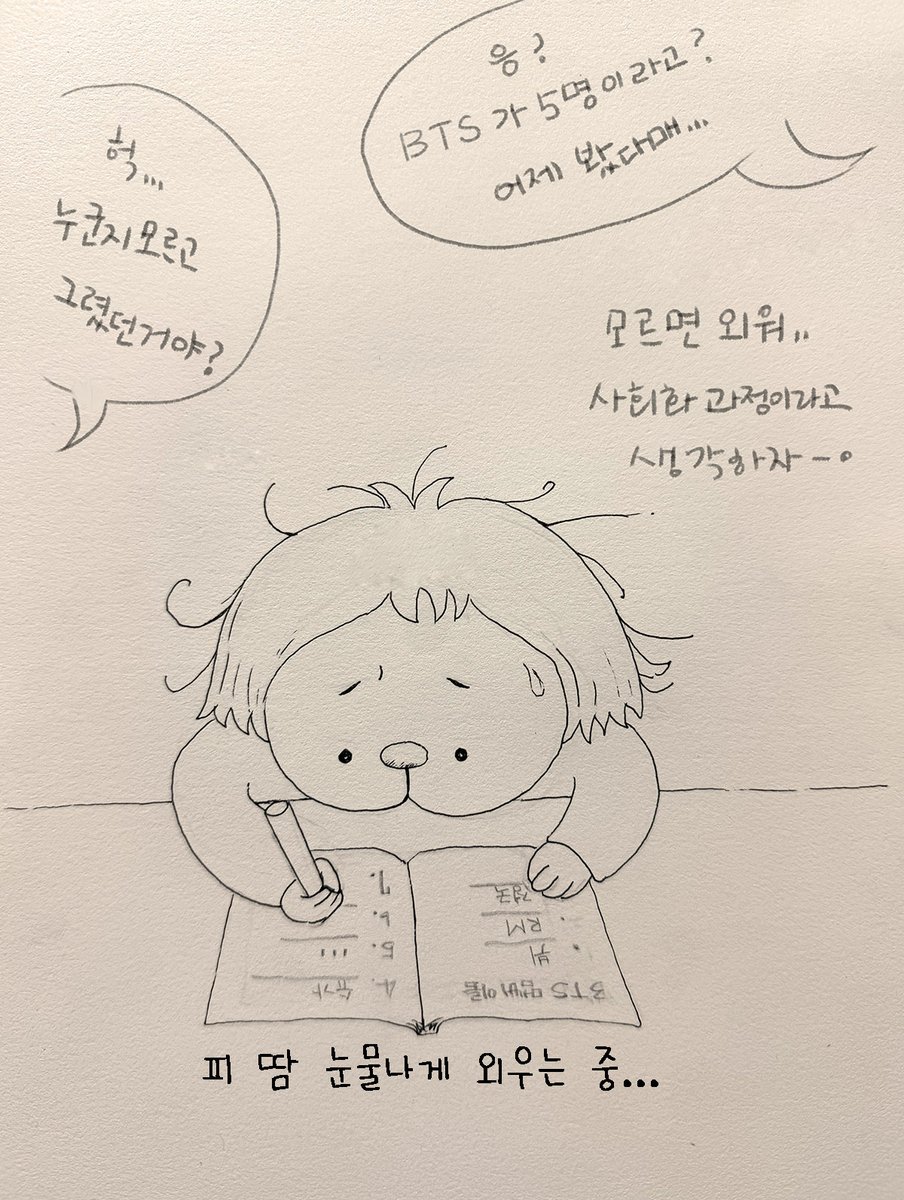 응?
BTS가 5명이라고?
어제 봤다매...
헉...
누군지모르고
그렸던거야?
모르면 외워..
사회화 과정이라고
생각하자-。
BTS 멤버 이름
뷔
RM
정국
4. 슈가
5. ...
6.
7.
피 땀 눈물나게 외우는 중...